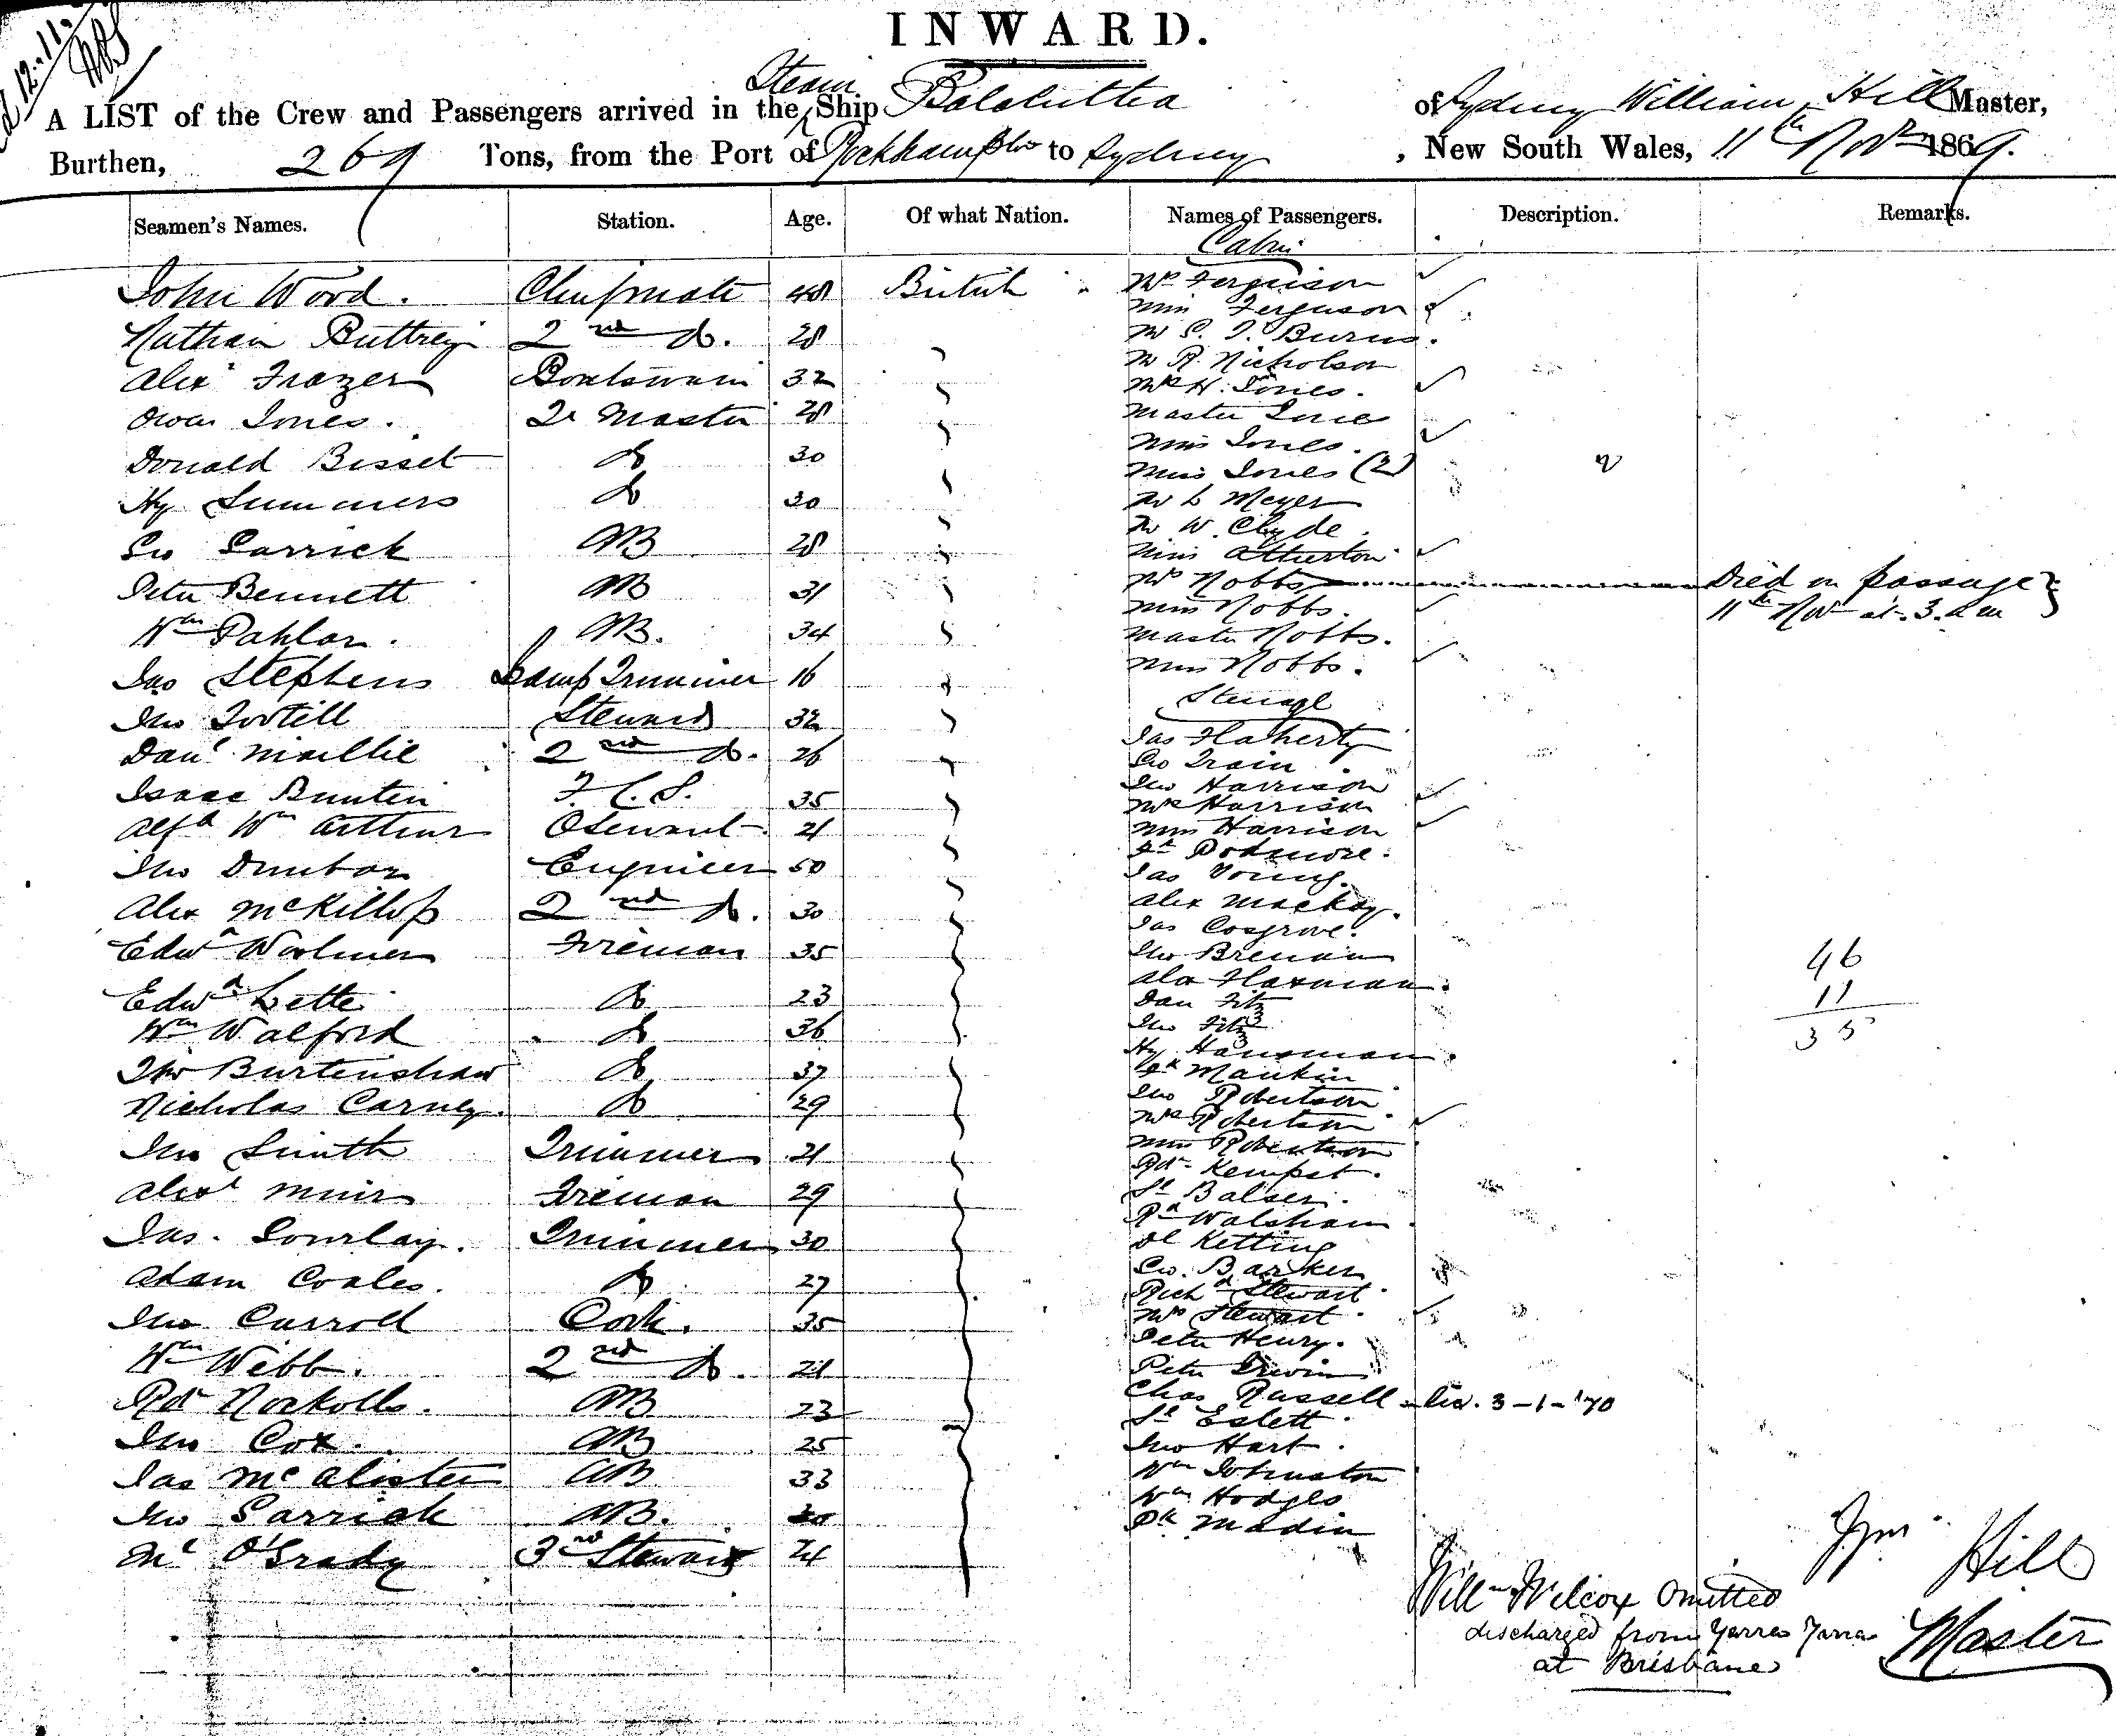 INWARD.
A LIST of the Crew and Passengers arrived in the Steam Ship Balclutha of Sydney William Hill Master,
Burthen, 269 Tons, from the Port of Rockhampton to Sydney, New South Wales, 11th Novr 1869.
Seamen's Names. Station. Age. Of what Nation. Names of Passengers. Description. Remarks.
Cabin
John Wood. Chief mate 48 British
Nathan Buttrey 2nd Do. 28
Alexr Frazer Boatswain 32
Owen Jones. Qr Master 28
Donald Bisset Do 30
Hy Summers Do 30
Geo Garrick AB 28
Peter Bennett AB 31
Wm Pahlan. AB. 34
Jno Stephens Lamp Trimmer 16
Jno Tootill Steward 32
Danl Maillie 2nd Do. 26
Isaac Buntin F. C. S. 35
Alfd Wm Arthur OSteward 21
Jno Dunbar Engineer 50
Alex McKillop 2nd Do. 30
Edwd Woolmer Fireman 35
Edwd Lette Do 23
Wm Walford Do 36
Jno Burtenshaw Do 37
Nicholas Carney. Do 29
Jno Smith Trimmer 21
Alexr Muir Fireman 29
Jas. Gourlay. Trimmer 30
Adam Coales. Do 27
Jno Carroll Cook. 35
Wm Webb. 2nd Do. 21
Rdt Norkolls. AB 23
Jno Cox. AB 25
Jas McAlister AB 33
Jno Garrick AB. 30
Ml O'Grady 3rd Steward 24
Mrs Ferguson
Miss Ferguson
Mr C. J. Burns.
Mr R. Nicholson
Mrs H. Jones.
Master Jones
Miss Jones.
Miss Jones (2)
Mr L Meyer
Mr W. Clyde.
Miss Atherton
Mrs Nobbs Died on passage
11th Novr at 3. a m
Miss Nobbs.
Master Nobbs.
Miss Nobbs.
Steerage
Jas Flaherty
Geo Train
Jno Harrison
Mrs Harrison
Miss Harrison
Podmore.
Jas Young.
Alex Mackay.
Jas Cosgrove.
Jno Brennan
Alex Flaxman.
Dan Fitz
Jno Fitz
Hy Hansman.
Mankin
Jno Robertson
Mrs Robertson
Miss Robertson
Rdt Kempst.
Balser.
Rd Walsham
Ketting
Geo. Barker
Richd Stewart.
Mrs Stewart.
Peter Henry.
Peter Irwin
Chas Russell 3-1-'70
Eslett.
Jno Hart.
Wm Johnston
Wm Hodges
Pk Madin
46
11
35
Willm Wilcox Omitted
discharged from Yarra Yarra
at Brisbane
Wm Hill
Master